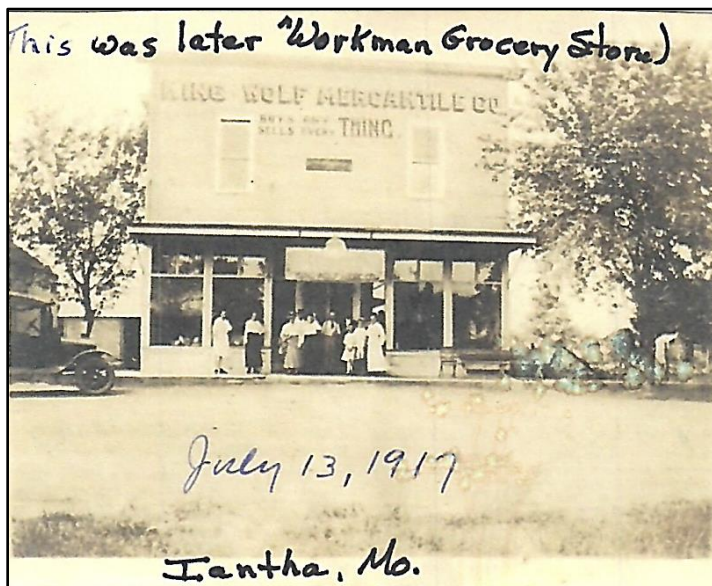 This was later "Workman Grocery Store)
KING WOLF MERCANTILE CO.
BUYS ANY
SELLS EVERY THING
July 13, 1917
Iantha, Mo.